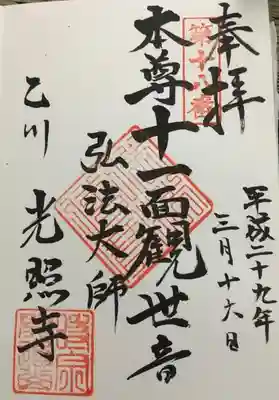 奉拝
平成二十九年
三月十六日
第十八番
本尊十一面観世音
弘法大師
乙川
光照寺